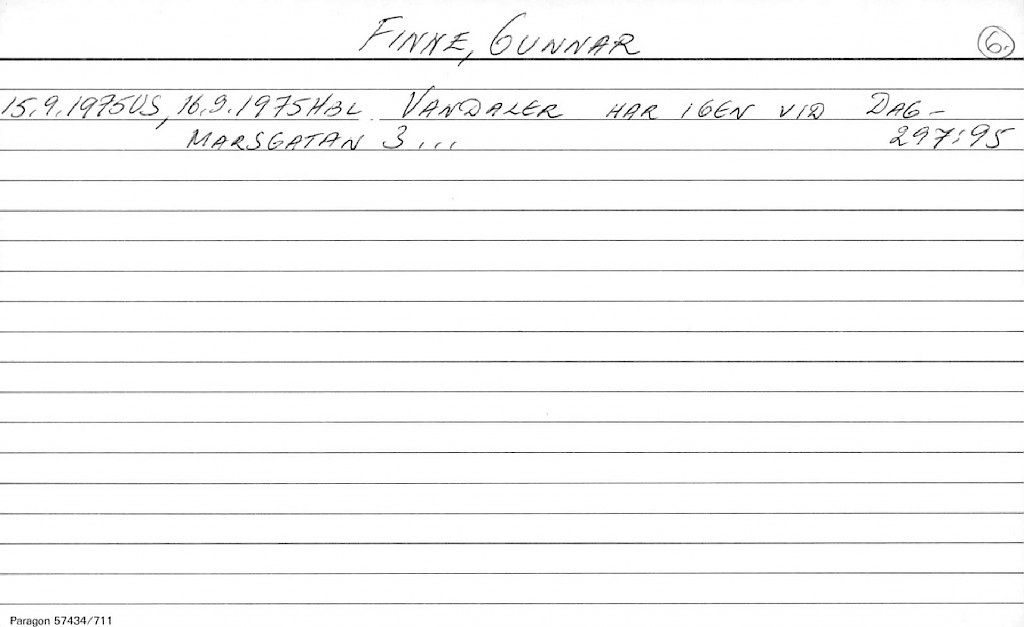 FINNE, GUNNAR 6.
15.9.1975 US, 16.9.1975 HBL. VANDALER HAR IGEN VID DAG-
MARSGATAN 3 ... 297:95
Paragon 57434/711